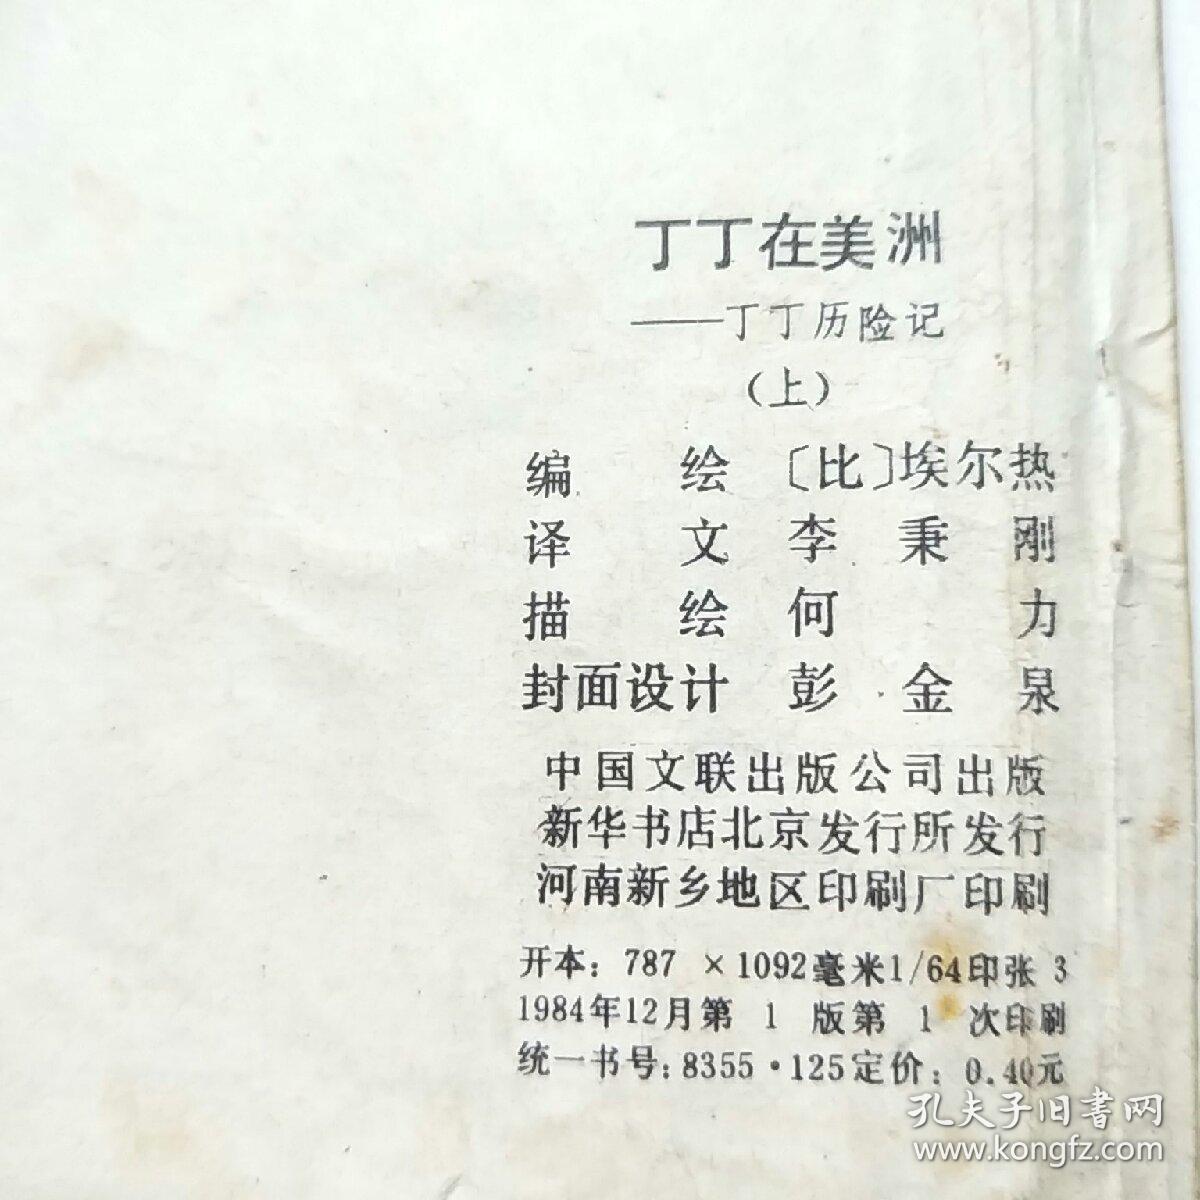 丁丁在美洲
——丁丁历险记
（上）
编 绘 〔比〕埃尔热
译 文 李秉刚
描 绘 何力
封面设计 彭金泉
中国文联出版公司出版
新华书店北京发行所发行
河南新乡地区印刷厂印刷
开本：787×1092毫米1/64印张 3
1984年12月第 1 版第 1 次印刷
统一书号：8355·125定价：0.40元
孔夫子旧书网
www.kongfz.com